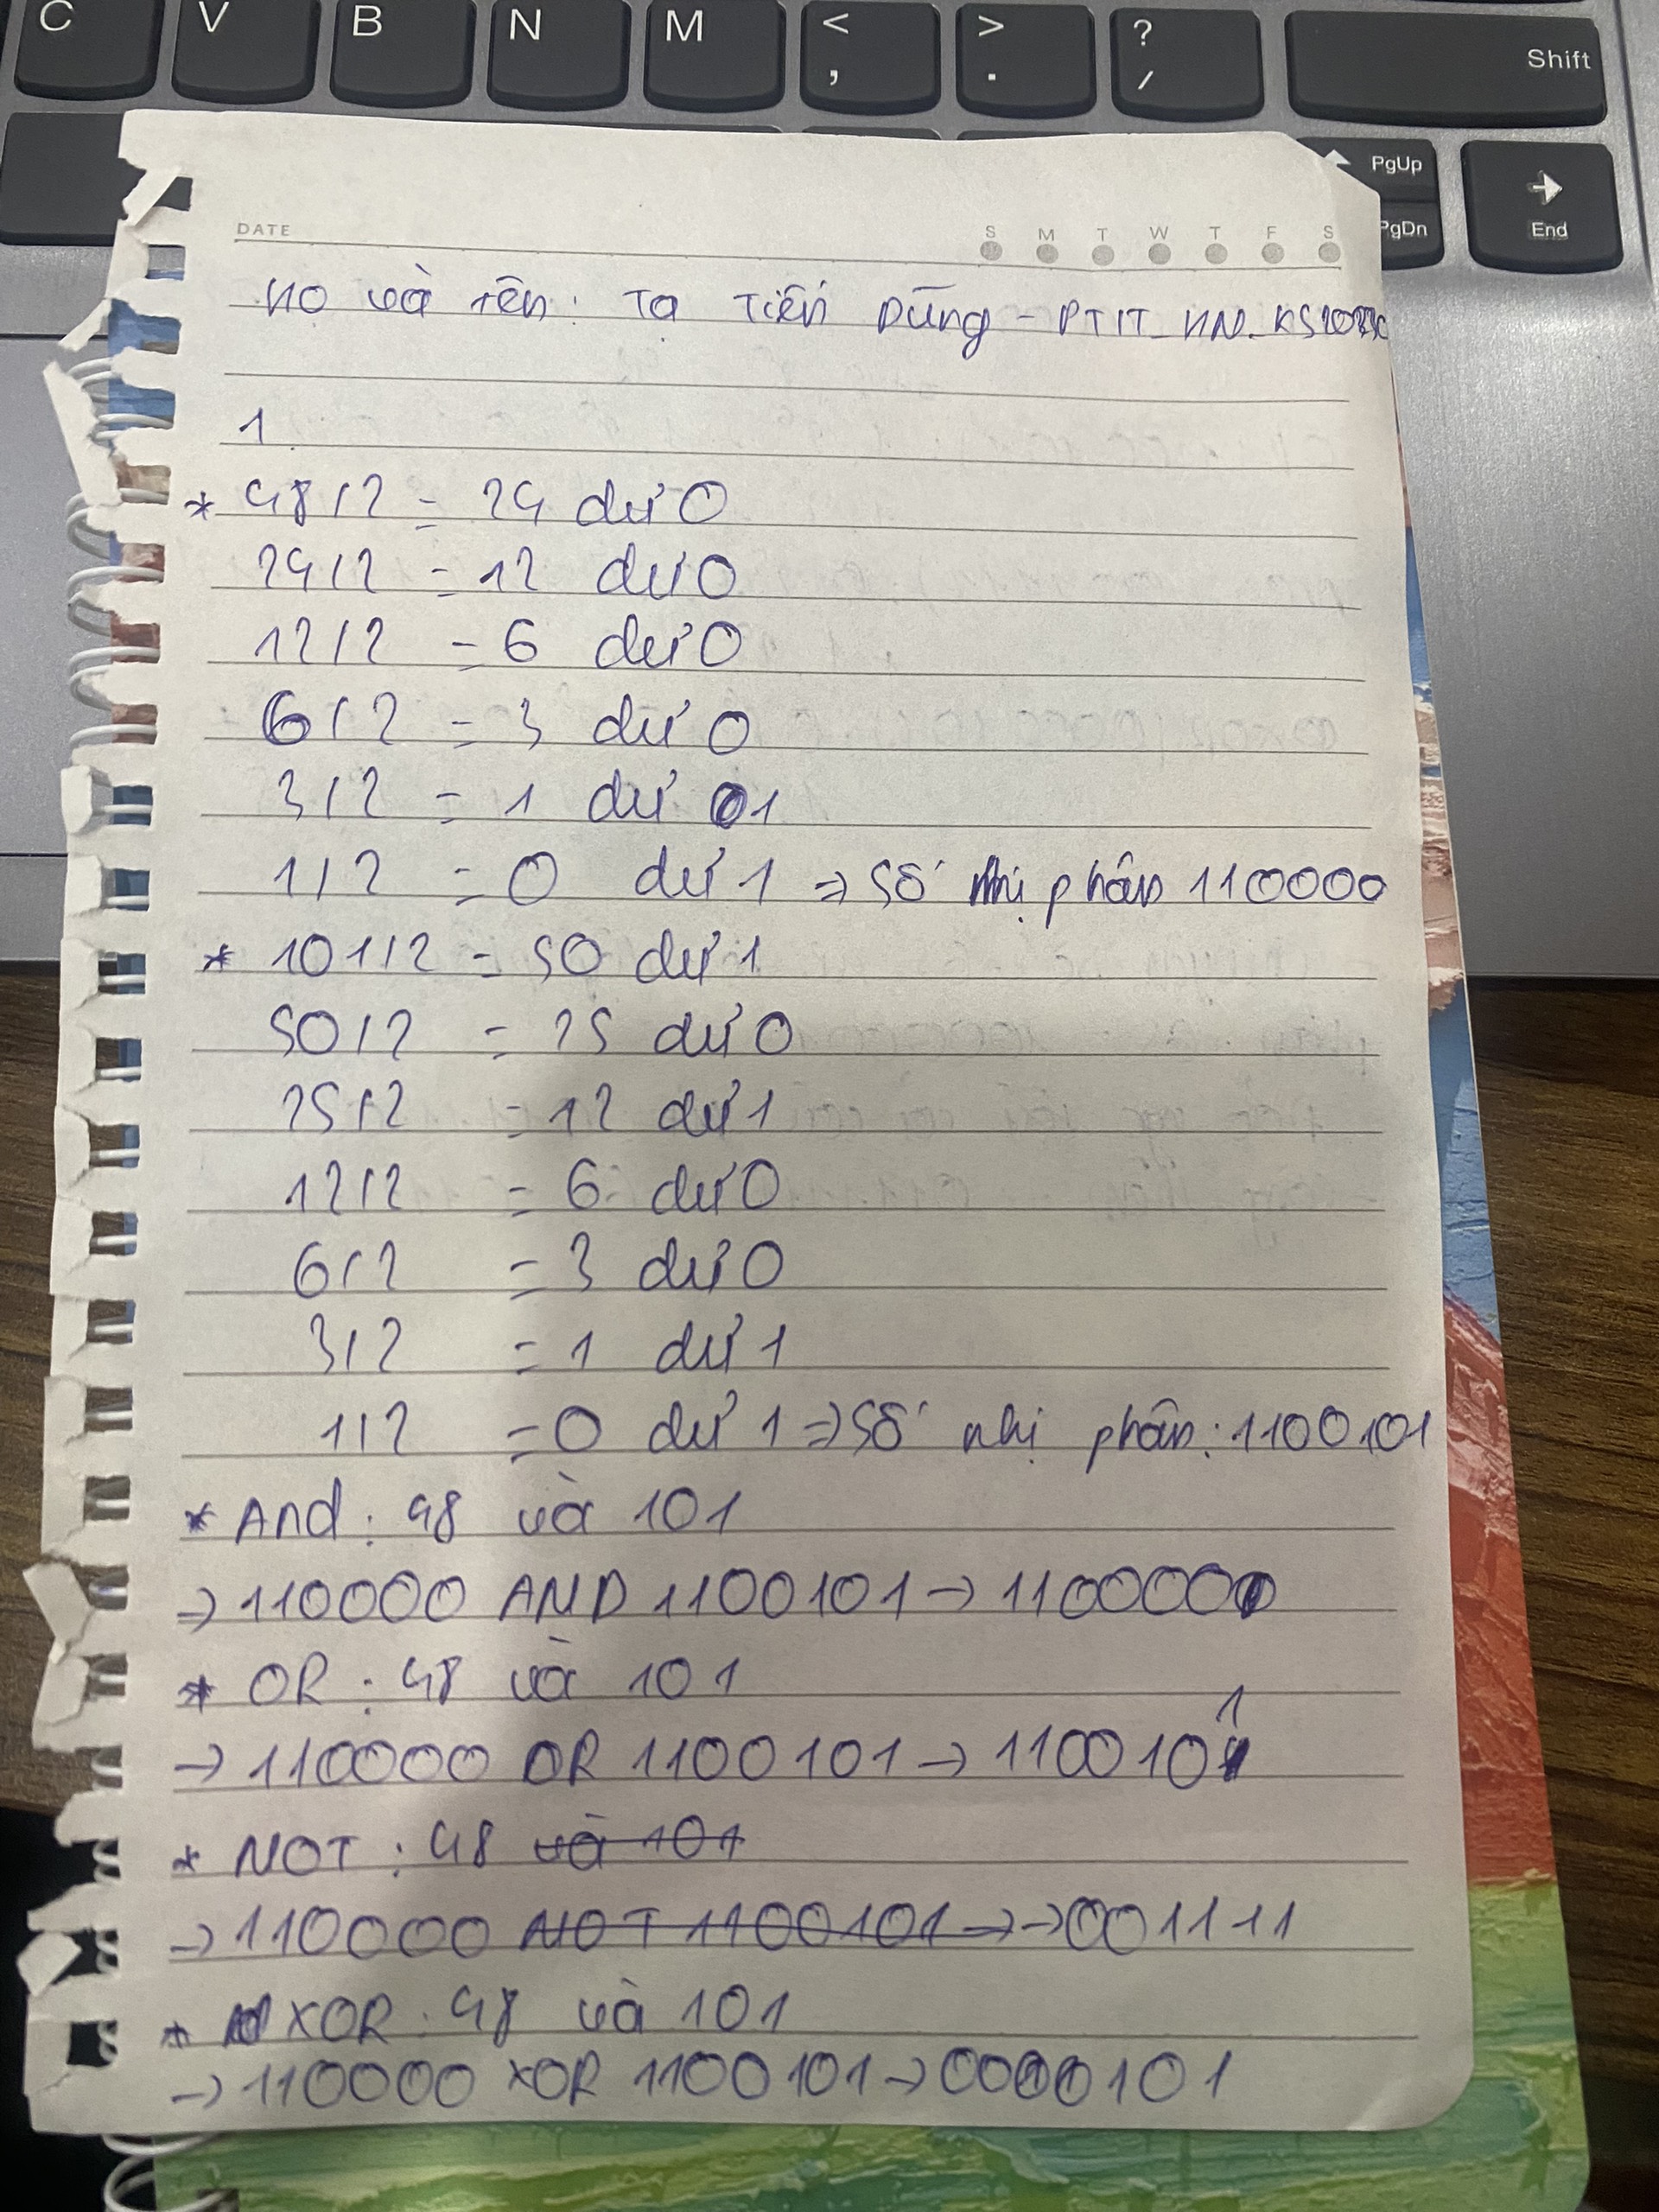 C V B N M < , > . ? / Shift
PgUp
PgDn End
DATE S M T W T F S
Họ và tên: Tạ Tiến Dũng - PTIT_HN_
1
* 48/2 = 24 dư 0
24/2 = 12 dư 0
12/2 = 6 dư 0
6/2 = 3 dư 0
3/2 = 1 dư 1
1/2 = 0 dư 1 => Số nhị phân 110000
* 101/2 = 50 dư 1
50/2 = 25 dư 0
25/2 = 12 dư 1
12/2 = 6 dư 0
6/2 = 3 dư 0
3/2 = 1 dư 1
1/2 = 0 dư 1 => Số nhị phân: 1100101
* And: 48 và 101
=> 110000 AND 1100101 -> 1100000
* OR: 48 và 101
-> 110000 OR 1100101 -> 1100101
* NOT: 48 và 101
-> 110000 NOT 1100101 -> -> 001111
* XOR: 48 và 101
-> 110000 XOR 1100101 -> 0000101